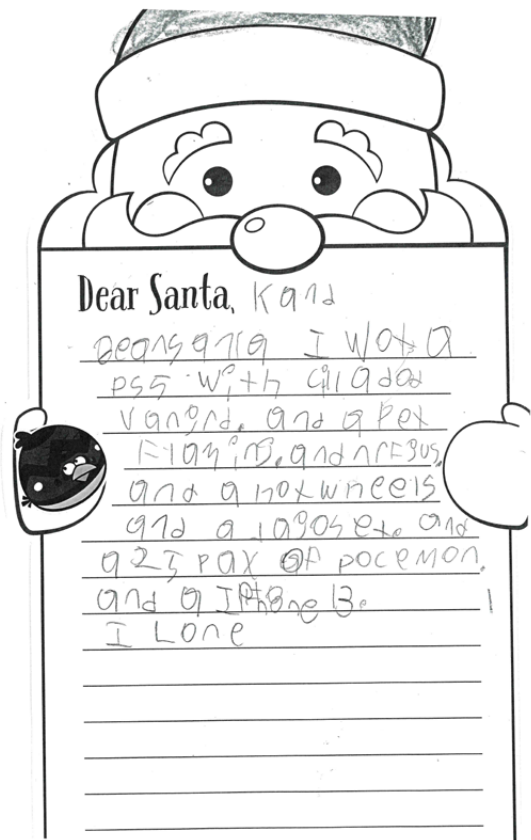 Dear Santa, Kana
Deansanta I Wota
PS5 With call adod
vangrd. and apex
and a hotwheels
and a lagos ex. and
a 25 pax of pocemon.
and a IPhone 13.
I Lone